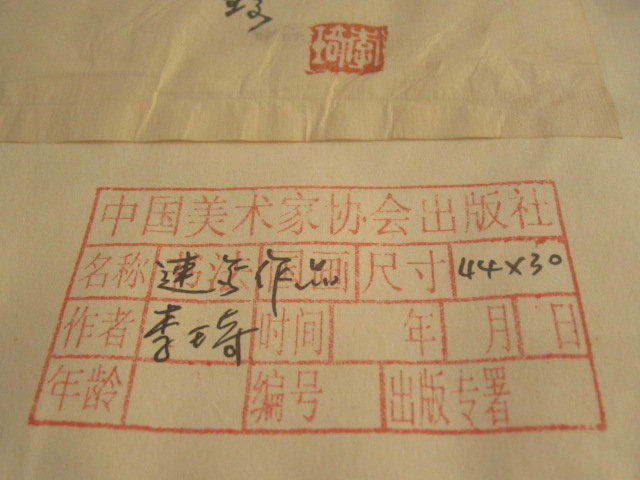 李琦
中国美术家协会出版社
名称 书法 国画 速写作品 尺寸 44×30
作者 李琦 时间 年 月 日
年龄 编号 出版专署